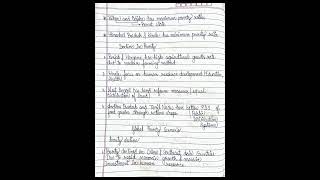 * Bihar and Odisha has maximum poverty ratio
poorest state
* Himachal Pradesh & Kerala has minimum poverty ratio
Decline In Poverty
* Punjab / Haryana has high agricultural growth rate
due to modern farming method
* Kerala focus on human resource development
* West Bengal has land reforms measures (equal
distribution of land)
* Andhra Pradesh and Tamil Nadu have better PDS of
food grains through ration shops (Public
Distribution
System)
Global Poverty Scenario
Poverty decline
Poverty declined in China / Southeast Asia Countries
Due to rapid economic growth / massive
Investment in human resource